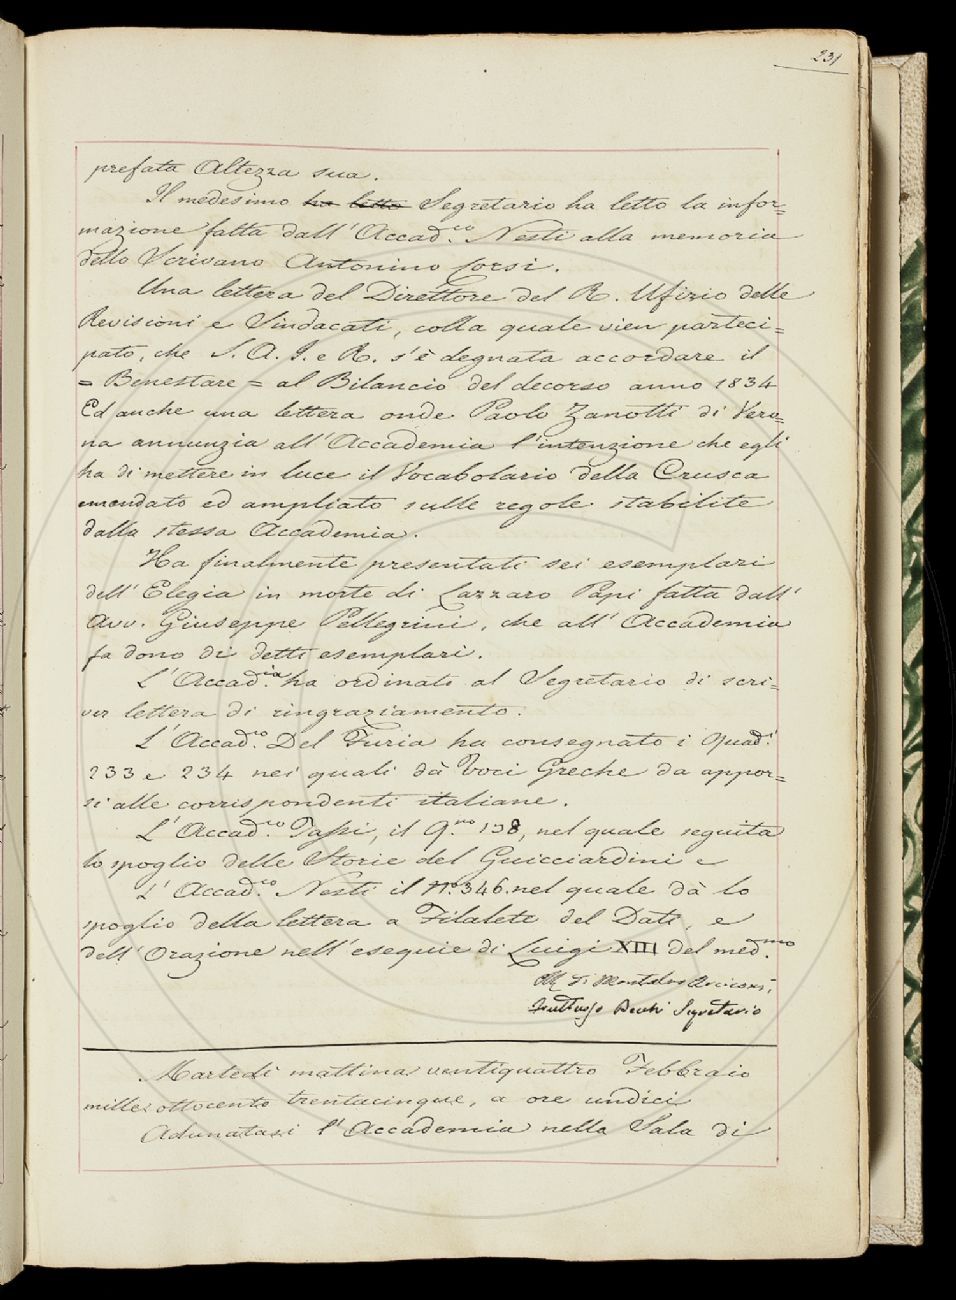 231
prefata Altezza sua.
Il medesimo ha letto Segretario ha letto la infor=
mazione fatta dall'Accad.co Nesti alla memoria
dello Scrivano Antonino Corsi.
Una lettera del Direttore del R. Ufizio delle
Revisioni e Sindacati, colla quale vien parteci=
pato, che S. A. I. e R. s'è degnata accordare il
= Benestare = al Bilancio del decorso anno 1834
Ed anche una lettera onde Paolo Zanotti di Vero=
na annunzia all'Accademia l'intenzione che egli
ha di mettere in luce il Vocabolario della Crusca
emendato ed ampliato sulle regole stabilite
dalla stessa Accademia.
Ha finalmente presentati sei esemplari
dell'Elegia in morte di Lazzaro Papi fatta dall'
Avv. Giuseppe Pellegrini, che all'Accademia
fa dono di detti esemplari.
L'Accad.ia ha ordinato al Segretario di scri=
ver lettera di ringraziamento.
L'Accad.co Del Furia ha consegnato i Quad.i
233 e 234 nei quali dà Voci Greche da appor=
si alle corrispondenti italiane.
L'Accad.co Tassi, il Q.no 138, nel quale seguita
lo spoglio delle Storie del Guicciardini e
L'Accad.co Nesti il N.o 346. nel quale dà lo
spoglio della lettera a Filalete del Dati, e
dell'Orazione nell'esequie di Luigi XIII del med.mo
di Montalvo Arciconso
Fruttuoso Becchi Segretario
Martedì mattina ventiquattro Febbraio
mille ottocento trentacinque, a ore undici
Adunatasi l'Accademia nella Sala di